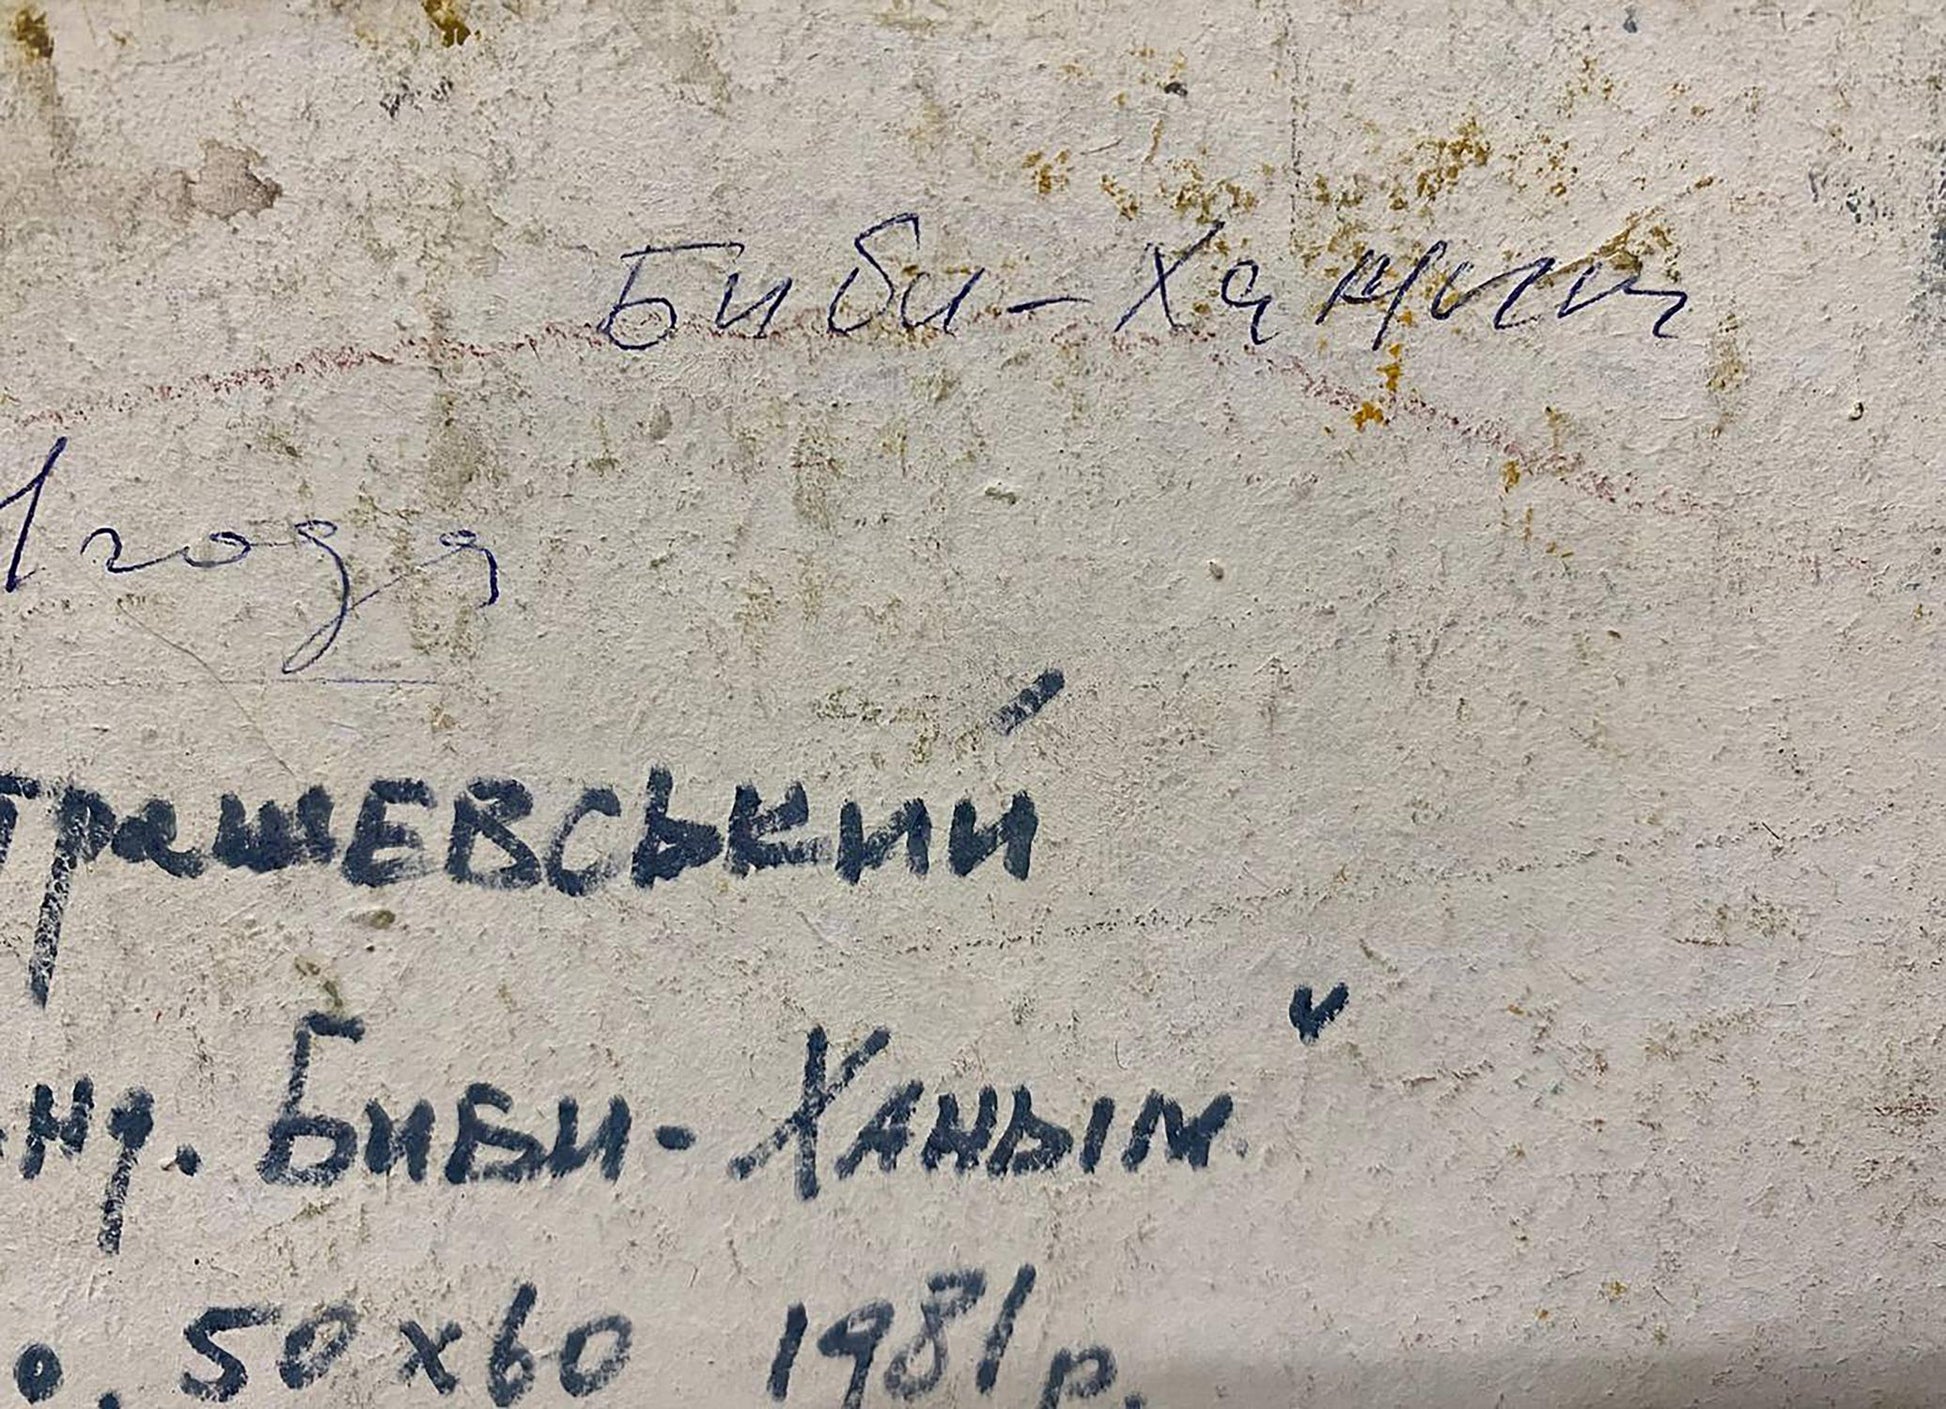 Биби-Ханым
1 года
трашевський
нд. Биби-Ханым"
о. 50х60 1981р.